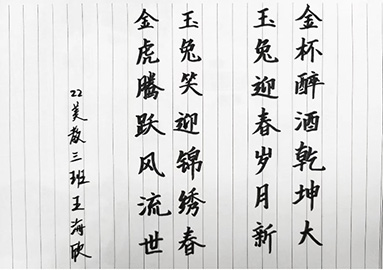 金杯醉酒乾坤大
玉兔迎春岁月新
玉兔笑迎锦绣春
金虎腾跃风流世
22美教三班王海欧